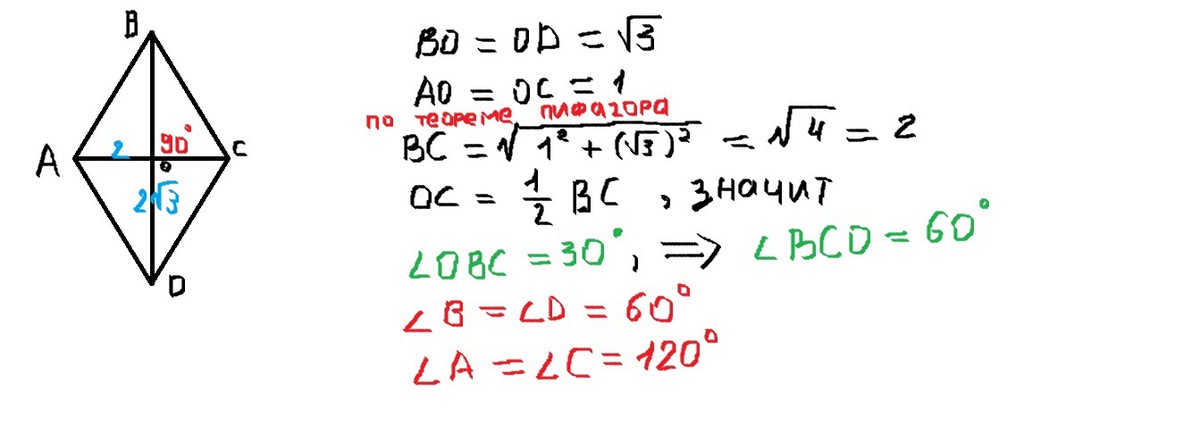 B
A
C
D
O
2
90°
2√3
BO = OD = √3
AO = OC = 1
по теореме пифагора
BC = √1² + (√3)² = √4 = 2
OC = 1/2 BC , значит
∠OBC = 30°, ⇒ ∠BCO = 60°
∠B = ∠D = 60°
∠A = ∠C = 120°